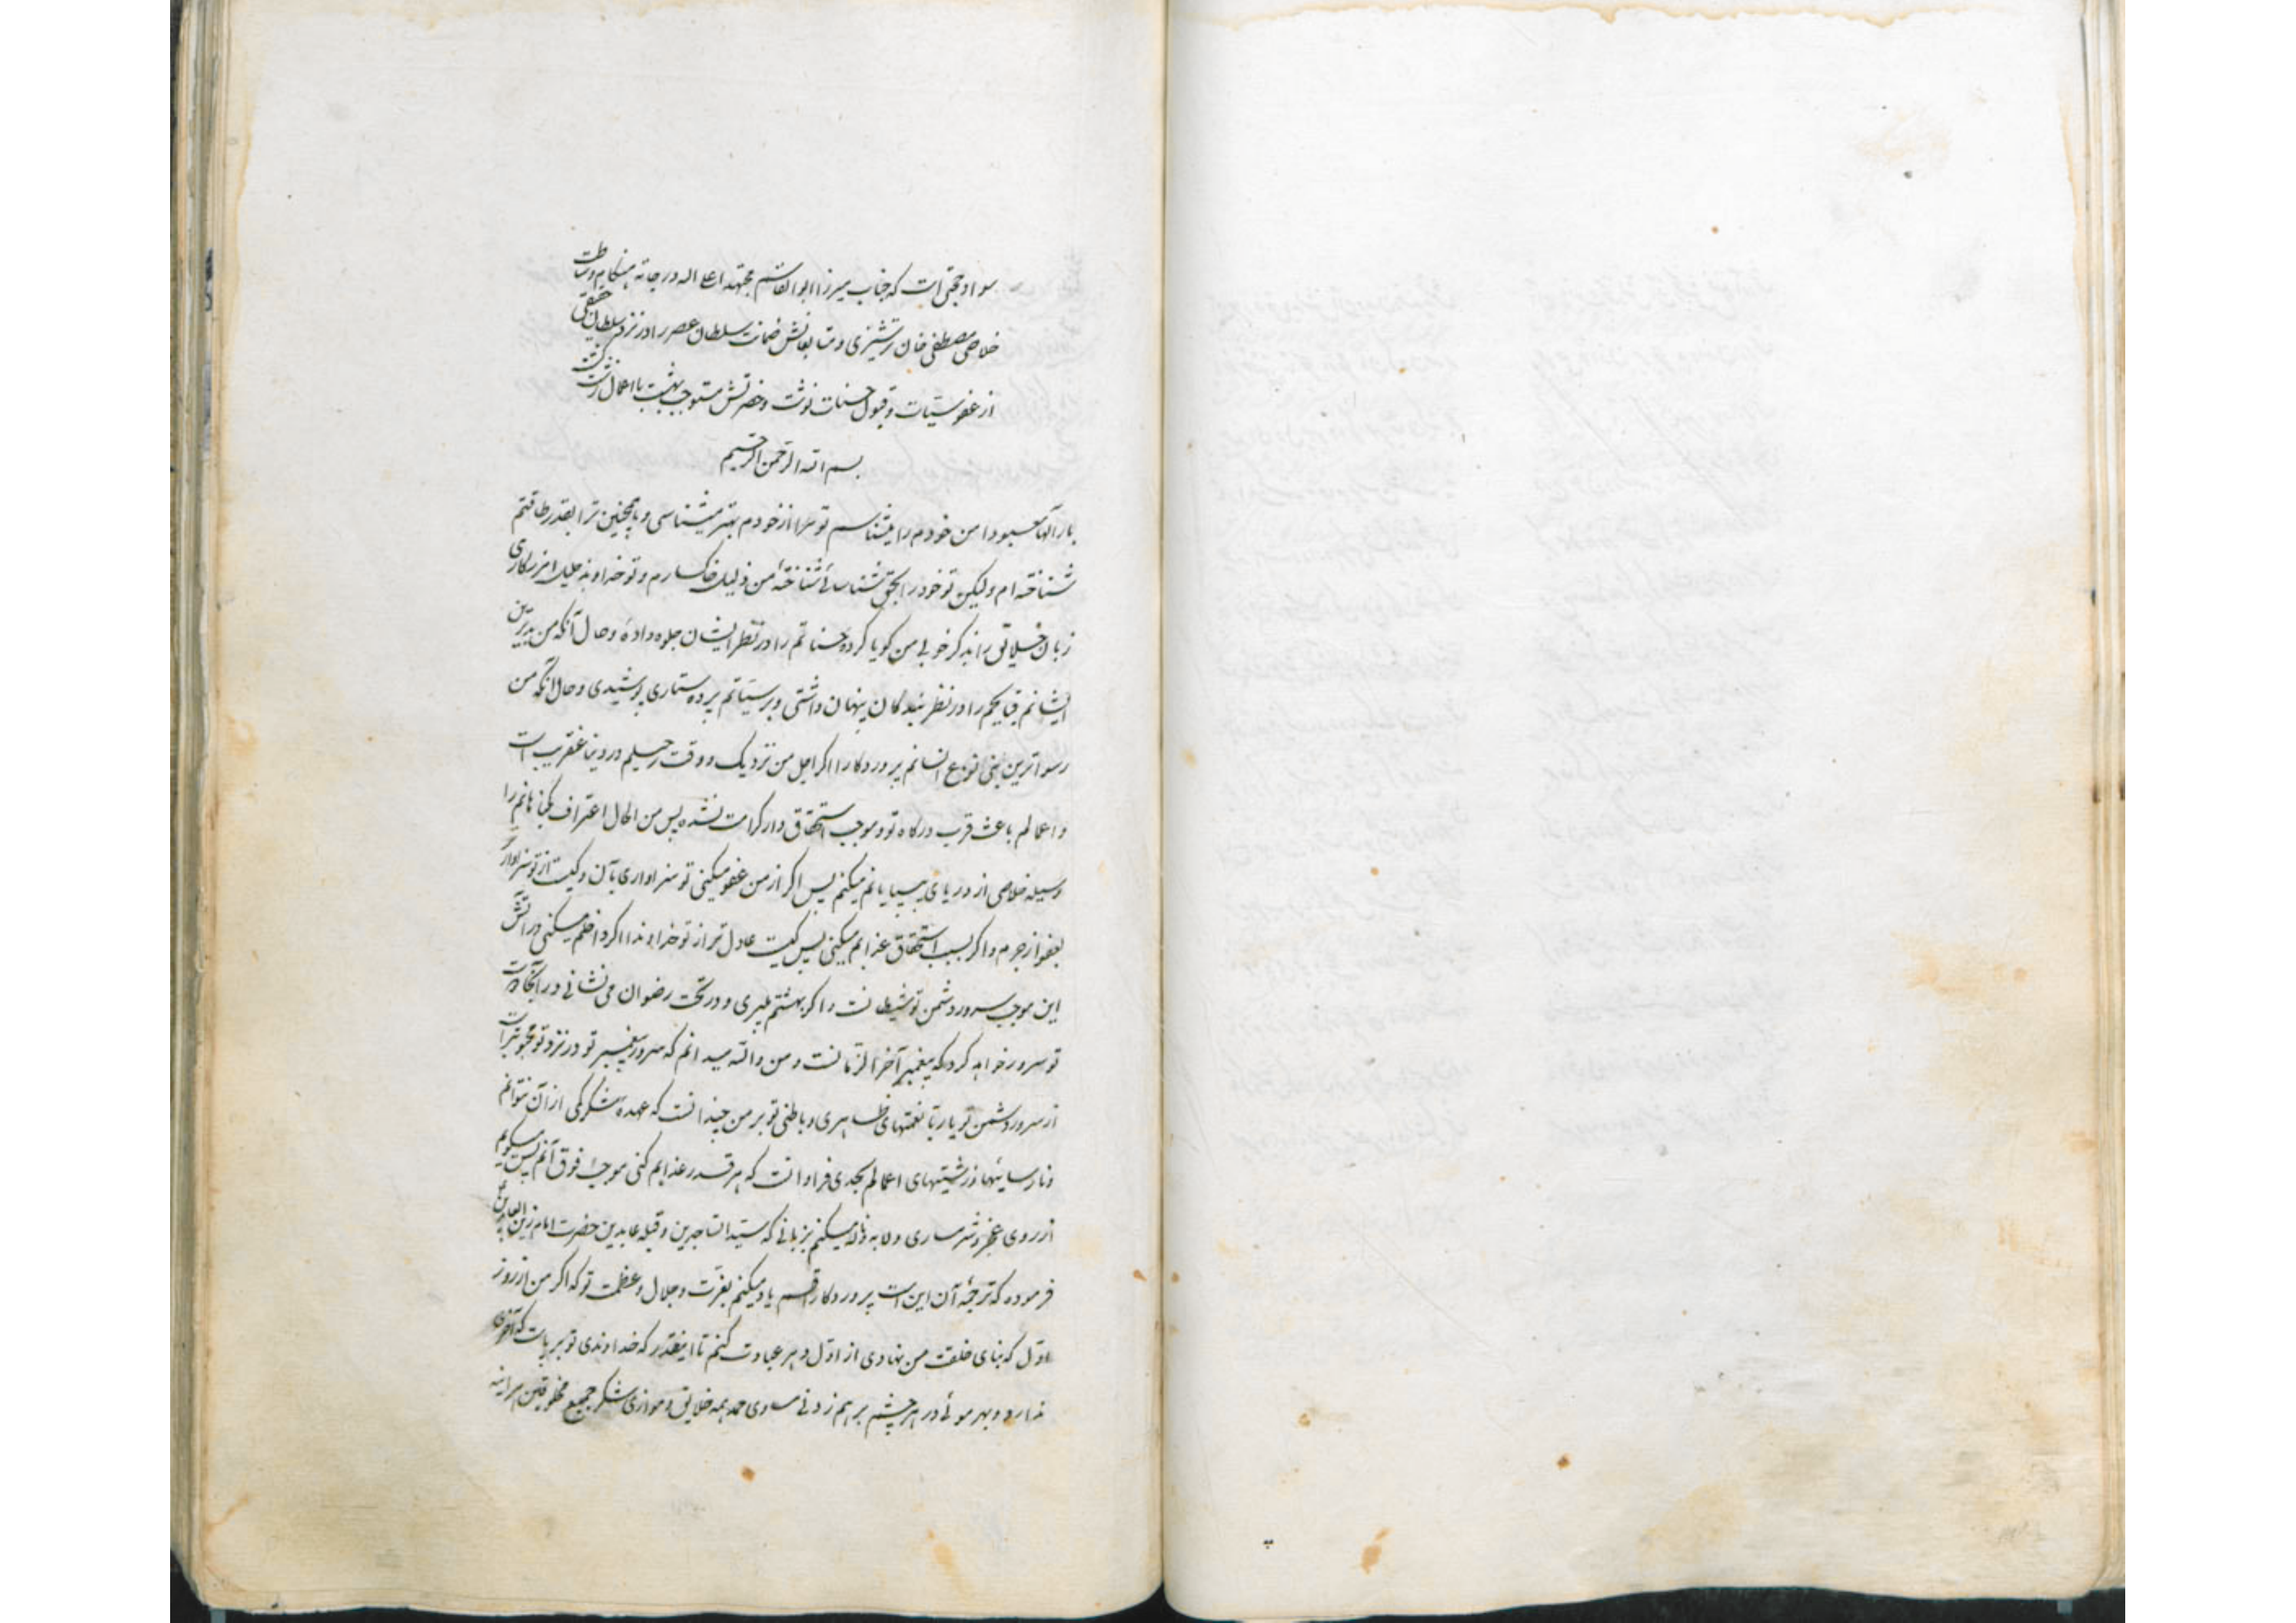 سواد حجتی است که جناب میرزا ابوالقاسم مجتهد اعلی اله درجاته هنگام وساطت
خلاصی مصطفی خان ترشیزی و متابعانش ضمانت سلطان عصر را در نزد سلطان حقیقی
از عفو سیئات و قبول حسنات نوشت و حضرتش مستوجب بهشت با اعمال زشت گشت
بسم الله الرحمن الرحیم
بار آلها معبودا من خودم را میشناسم تو مرا از خودم بهتر میشناسی و همچنین ترا بقدر طاقتم
شناخته ام ولیکن تو خود را بحق شناسائی شناختهٔ من ذلیل خاکسارم و تو خداوند جلیل
زبان خلایق را بذکر خوبی من کویا کرده حسناتم را در نظر ایشان جلوه دادهٔ و حال آنکه من بدترین
ایشانم قبایحم را در نظر بندکان پنهان داشتی و بر سیئاتم پرده ستاری پوشیدی و حال آنکه من
رسواترین بنی نوع انسانم پروردکارا اکر اجل من نزدیک و وقت رحیلم در دنیا عنقریب است
و اعمالم باعث قرب درکاه تو و موجب استحقاق دار کرامت نشده پس من الحال اعتراف بکناهانم را
وسیله خلاصی از دریای بیپایانم میکنم پس اکر از من عفو میکنی تو سزاواری بآن و کیست از تو سزاوارتر
بعفو از جرم و اکر بسبب استحقاق عذابم میکنی پس کیست عادل تر از تو خداوندا اکر داخلم میکنی در آتش
این موجب سرور دشمن تو شیطانست و اکر بهشتم میبری و در تحت رضوان می نشانی در آنجا دوست
تو سرور خواهد کرد که پیغمبر آخر الزمانست و من والله میدانم که سرور پیغمبر تو در نزد تو محبوبتر است
از سرور دشمن تو یا ربا نعمتهای ظاهری و باطنی تو بر من چندانست که عهده شکر یکی از آن نتوانم
و نارسائیها و زشتیهای اعمالم بحدی فراوانست که هر قدر عذابم کنی موجب فوق آنم پس میکویم
از روی عجز و شرمساری و لابه و ناله میکنم بزبانی که سید الساجدین و قبله عابدین حضرت امام زین العابدین
فرموده که ترجمهٔ آن این است پروردکارا قسم یاد میکنم بعزت و جلال و عظمت تو که اکر من از روز
اول که بنای خلقت من نهادی از اول دهر عبادت کنم تا اینقدر که خداوندی تو بر پاست که آخری
ندارد و بهر موئی در هر چشم بر هم زدنی مساوی حمد همه خلایق و موازی شکر جمیع مخلوقین هر آینه